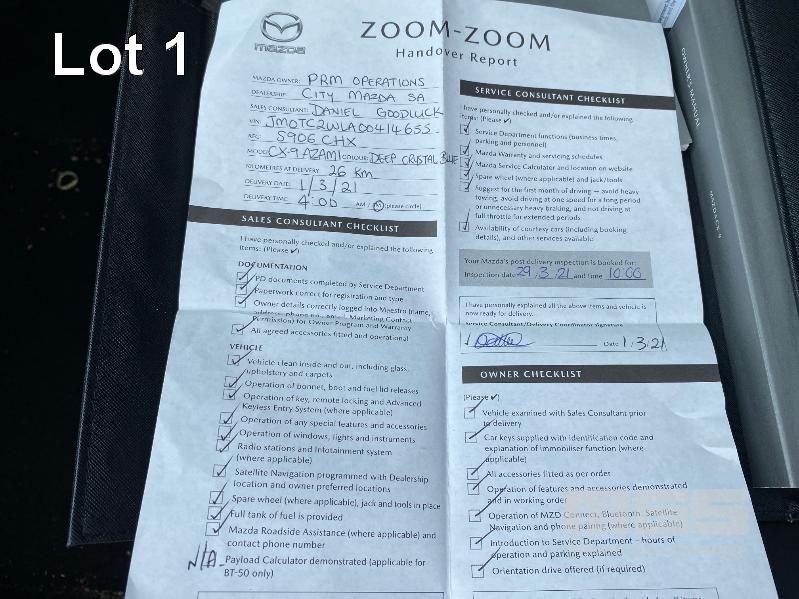 Lot 1
mazda
ZOOM-ZOOM
Handover Report
MAZDA OWNER: PRM OPERATIONS
DEALERSHIP: CITY MAZDA SA
SALES CONSULTANT: DANIEL GOODLUCK
VIN: JM0TC2WLA00414655
REG: S906CHX
MODEL: CX-9 AZAMI COLOUR: DEEP CRISTAL BLUE
KILOMETRES AT DELIVERY: 26 KM
DELIVERY DATE: 1/3/21
DELIVERY TIME: 4:00 AM / PM (please circle)
SALES CONSULTANT CHECKLIST
I have personally checked and/or explained the following
items: (Please ✔)
DOCUMENTATION
PD documents completed by Service Department
Paperwork correct for registration and type
Owner details correctly logged into Maestro (name,
address, phone no., email, Marketing Contact
Permission) for Owner Program and Warranty
All agreed accessories fitted and operational
VEHICLE
Vehicle clean inside and out, including glass,
upholstery and carpets
Operation of bonnet, boot and fuel lid releases
Operation of key, remote locking and Advanced
Keyless Entry System (where applicable)
Operation of any special features and accessories
Operation of windows, lights and instruments
Radio stations and Infotainment system
(where applicable)
Satellite Navigation programmed with Dealership
location and owner preferred locations
Spare wheel (where applicable), jack and tools in place
Full tank of fuel is provided
Mazda Roadside Assistance (where applicable) and
contact phone number
N/A Payload Calculator demonstrated (applicable for
BT-50 only)
SERVICE CONSULTANT CHECKLIST
I have personally checked and/or explained the following
items: (Please ✔)
Service Department functions (business times,
parking and personnel)
Mazda Warranty and servicing schedules
Mazda Service Calculator and location on website
Spare wheel (where applicable) and jack/tools
Suggest for the first month of driving – avoid heavy
towing, avoid driving at one speed for a long period
or unnecessary heavy braking, and not driving at
full throttle for extended periods
Availability of courtesy cars (including booking
details), and other services available
Your Mazda's post delivery inspection is booked for:
Inspection date 29/3/21 and time 10:00
I have personally explained all the above items and vehicle is
now ready for delivery.
Service Consultant/Delivery Coordinator signature
Date 1/3/21
OWNER CHECKLIST
(Please ✔)
Vehicle examined with Sales Consultant prior
to delivery
Car keys supplied with identification code and
explanation of immobiliser function (where
applicable)
All accessories fitted as per order
Operation of features and accessories demonstrated
and in working order
Operation of MZD Connect, Bluetooth, Satellite
Navigation and phone pairing (where applicable)
Introduction to Service Department – hours of
operation and parking explained
Orientation drive offered (if required)
OWNER'S MANUAL